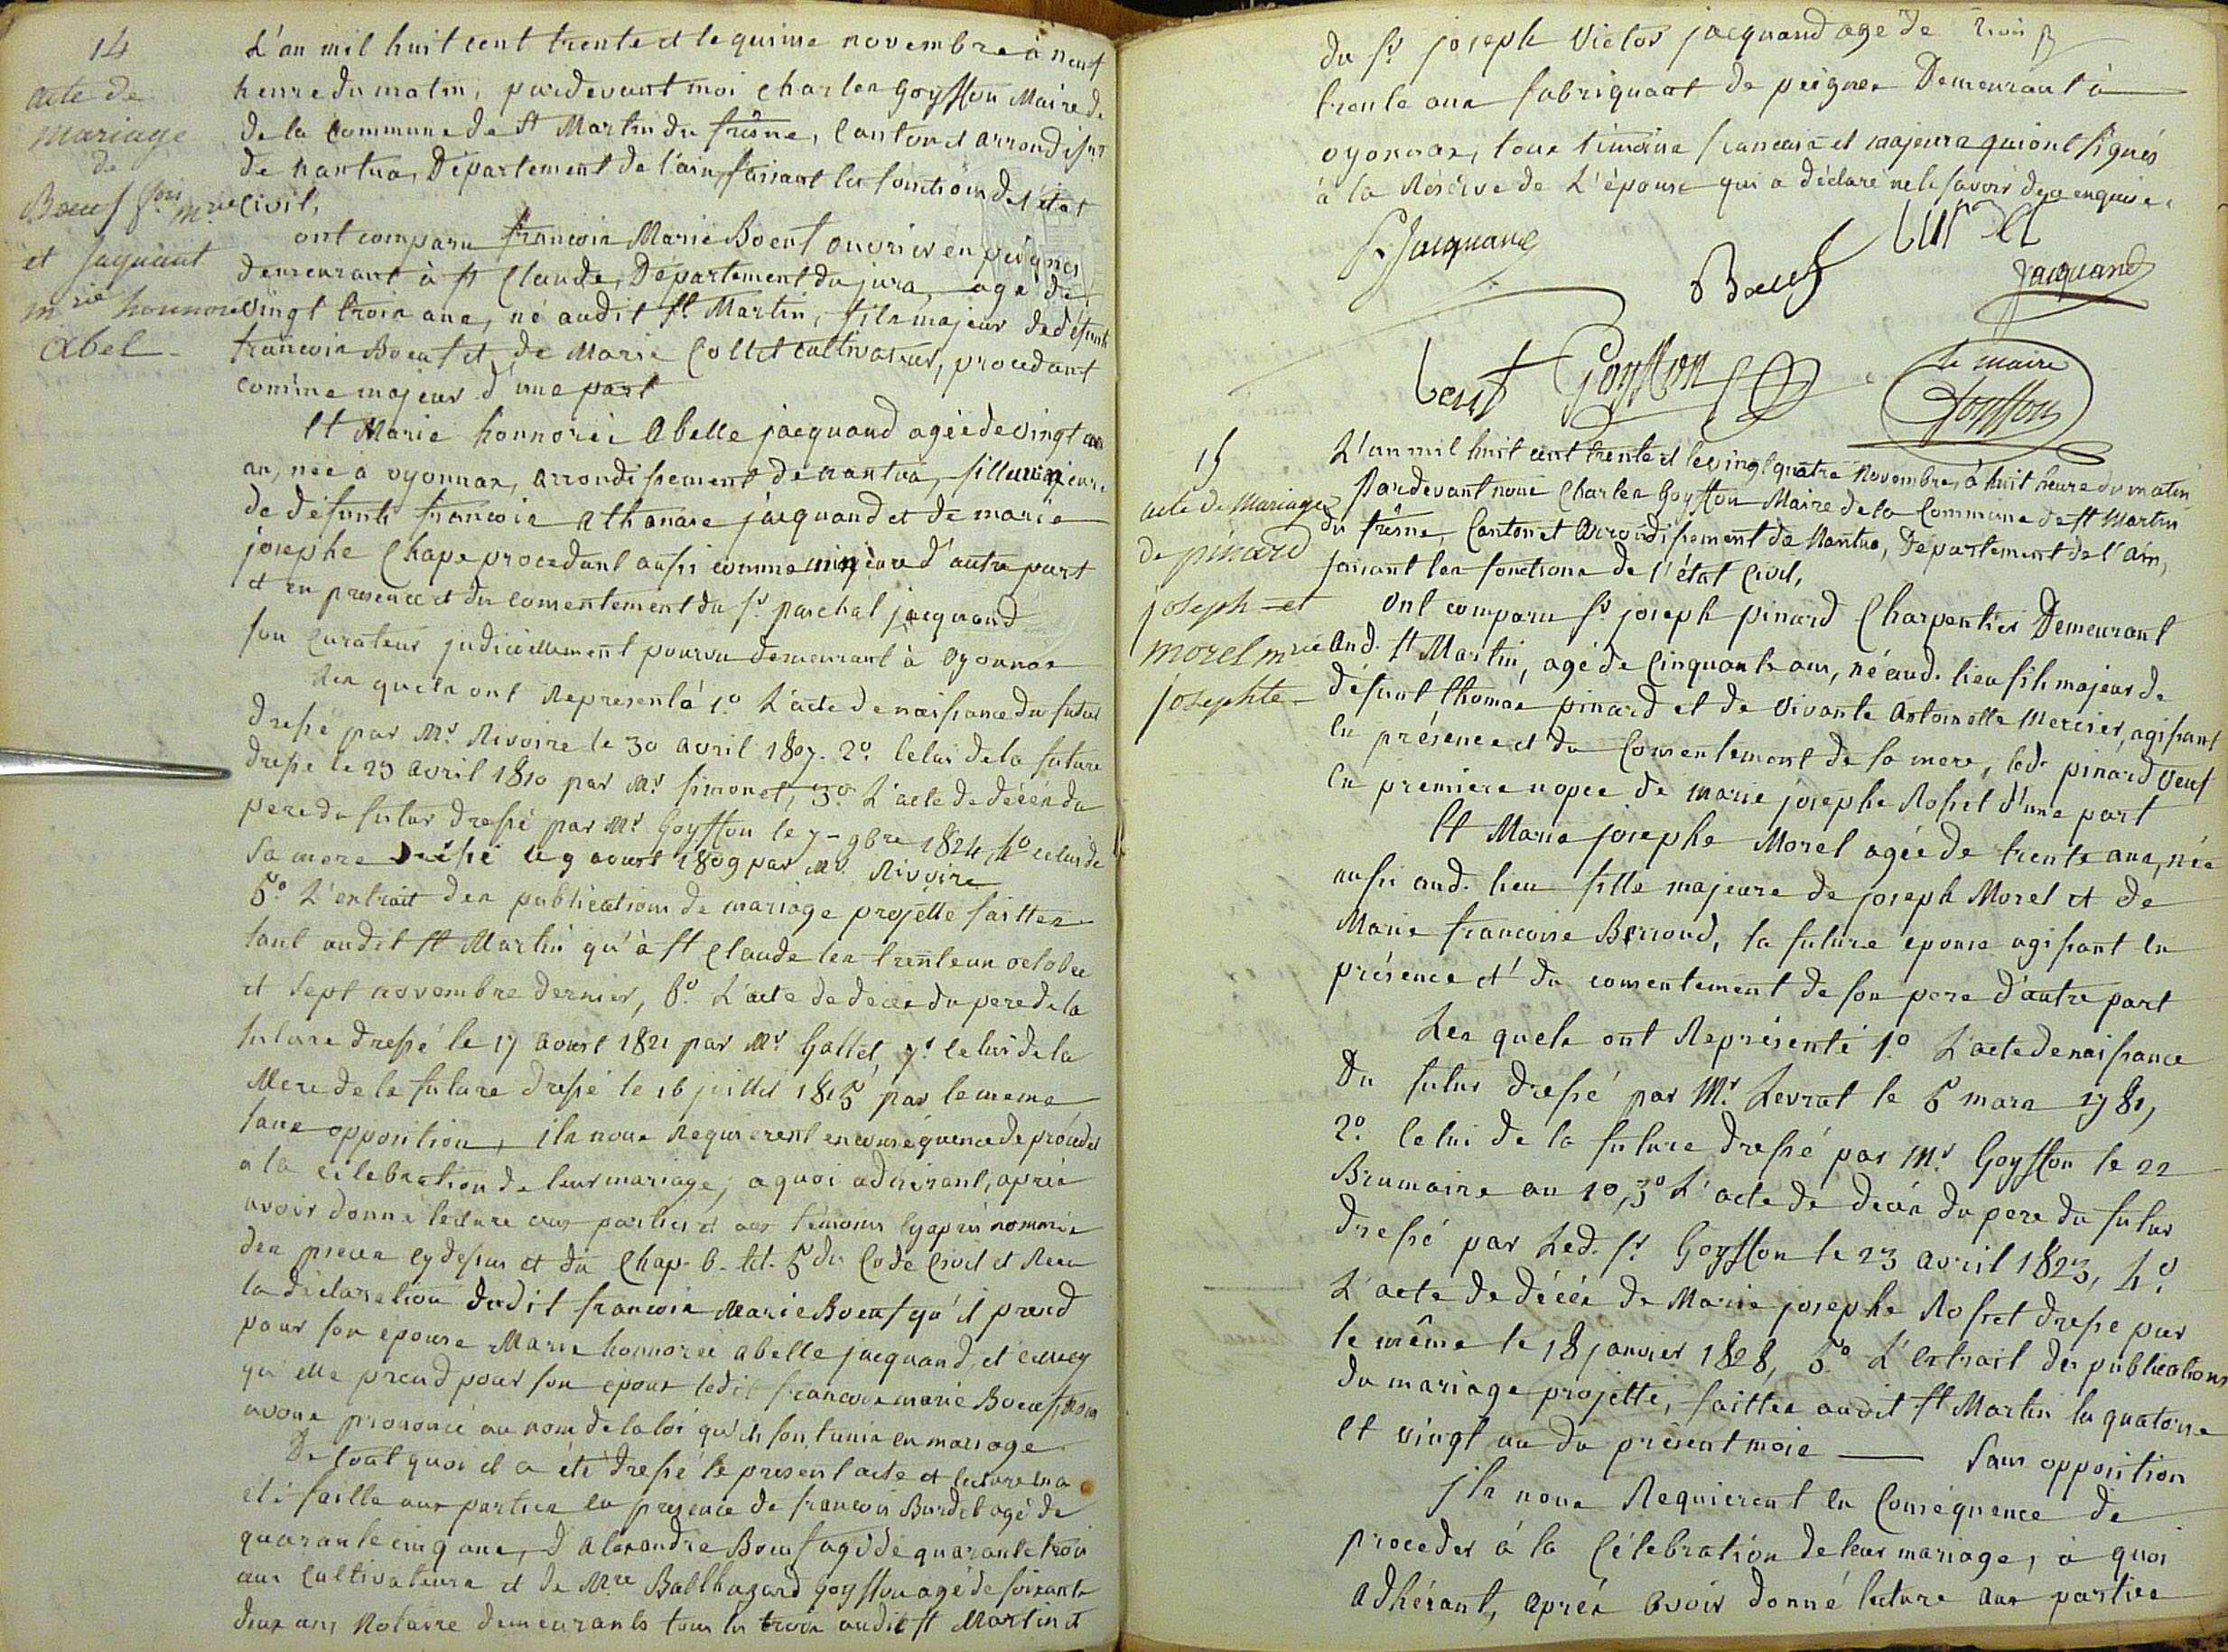 14
acte de
mariage
de
Boeuf fois mrie
et Jaquant
mrie honnore
Abel
L'an mil huit cent trente et le quinze novembre à neuf
heure du matin, pardevant moi Charles Goyffon Maire de
de la Commune de St Martin du frêne, Canton et arrondisnt
de nantua, Département de l'ain, faisant les fonctions de l'état
Civil,
ont comparu francois Marie Boeuf ouvrier en peignes
demeurant à st Claude, Département du jura, agé de
vingt trois ans, né audit St Martin, fils majeur de défunt
francois Boeuf et de Marie Collet cultivateur, procedant
comme majeur d'une part
Et Marie honnorée Abelle jacquand agée de vingt
an, née à oyonnax, arrondissement de nantua, fille mineure
de défunts francois athanase jacquand et de marie
josephe Chape procedant aussi comme mineure d'autre part
et en presence et du consentement du sr. paschal jacquand
son Curateur judiciellement pourvu demeurant à Oyonnax
Les quels ont Representé 1.º L'acte de naissance du futur
dressé par Mr. Rivoire le 30 avril 1807. 2º celui de la future
dressé le 23 avril 1810 par Mr simonet, 3º L'acte de décès du
pere du futur dressé par Mr Goyffon le 7 - 9bre 1824 4º celui de
sa mere dressé le 9 aoust 1809 par Mr. Rivoire
5º L'extrait des publications de mariage projetté faittes
tant audit st Martin qu'à st Claude les trente un octobre
et sept novembre dernier, 6º. L'acte de deces du pere de la
future dressé le 17 aoust 1821 par Mr. Gallet, 7º. celui de la
Mere de la future dressé le 16 juillet 1815 par le meme
sans opposition, ils nous Requierent en conséquence de procéder
a la celebration de leur mariage, a quoi adherant, après
avoir donné lecture aux parties et aux temoins cy après nommés
des pieces cy dessus et du Chap. 6. tit. 5 du Code Civil et Recu
la déclaration dudit francois Marie Boeuf qu'il prend
pour son epouse Marie honnorée abelle jacquand, et
qu'elle prend pour son epoux ledit francois marie Boeuf, nous
avons prononcé au nom de la loi qu'ils sont unis en mariage
De tout quoi il a été dressé le present acte et lecture en a
été faitte aux parties en presence de francois Burdet agé de
quarante cinq ans, d'alexandre Boeuf agé de quarante trois
ans Cultivateurs et de Mre Balthazard Goyffon agé de soixante
deux ans Notaire demeurants tous les trois audit st Martin et
du sr joseph Victor jacquand agé de trois
trente ans fabriquant de peignes Demeurant à
oyonnax, tous témoins francais et majeurs qui ont signés
à la Réserve de L'épouse qui a déclaré ne le savoir de ce enquise.
P. Jacquand
Boeuf
burdet
Jacquand
beuf
Goyffon
Le maire
Goyffon
15
acte de Mariage
de pinard
joseph et
morel mrie
josephte
L'an mil huit cent trente et le vingt quatre Novembre, à huit heure du matin
Pardevant nous Charles Goyffon Maire de la Commune de St Martin
du frêne, Canton et arrondissement de Nantua, Département de l'ain,
faisant les fonctions de l'état Civil,
Ont comparu sr joseph pinard Charpentier Demeurant
aud. st Martin, agé de Cinquante ans, né aud. lieu fils majeur de
défunt thomas pinard et de vivante Antoinette Mercier, agissant
En présence et du Consentement de sa mere, led. pinard Veuf
En premiere nopce de marie josephe Rosset d'une part
Et Marie josephe Morel agée de trente ans, née
aussi aud. lieu fille majeure de joseph Morel et de
Marie francoise Berroud, la future epouse agissant en
présence et du consentement de son pere d'autre part
Les quels ont Représenté 1º L'acte de naissance
Du futur dressé par Mr. Levrat le 5 mars 1781,
2º. celui de la future dressé par Mr. Goyffon le 22
Brumaire an 10, 3º L'acte de decès du pere du futur
dressé par Led. sr Goyffon le 23 avril 1823, 4º.
L'acte de décès de Marie josephe Rosset dressé par
le même le 18 janvier 1828, 5º L'extrait des publications
du mariage projetté, faittes audit st Martin les quatorze
et vingt un du présent mois — Sans opposition
ils nous Requierent en Conséquence de
proceder à la Célébration de leur mariage, à quoi
adhérant, après avoir donné lecture aux parties